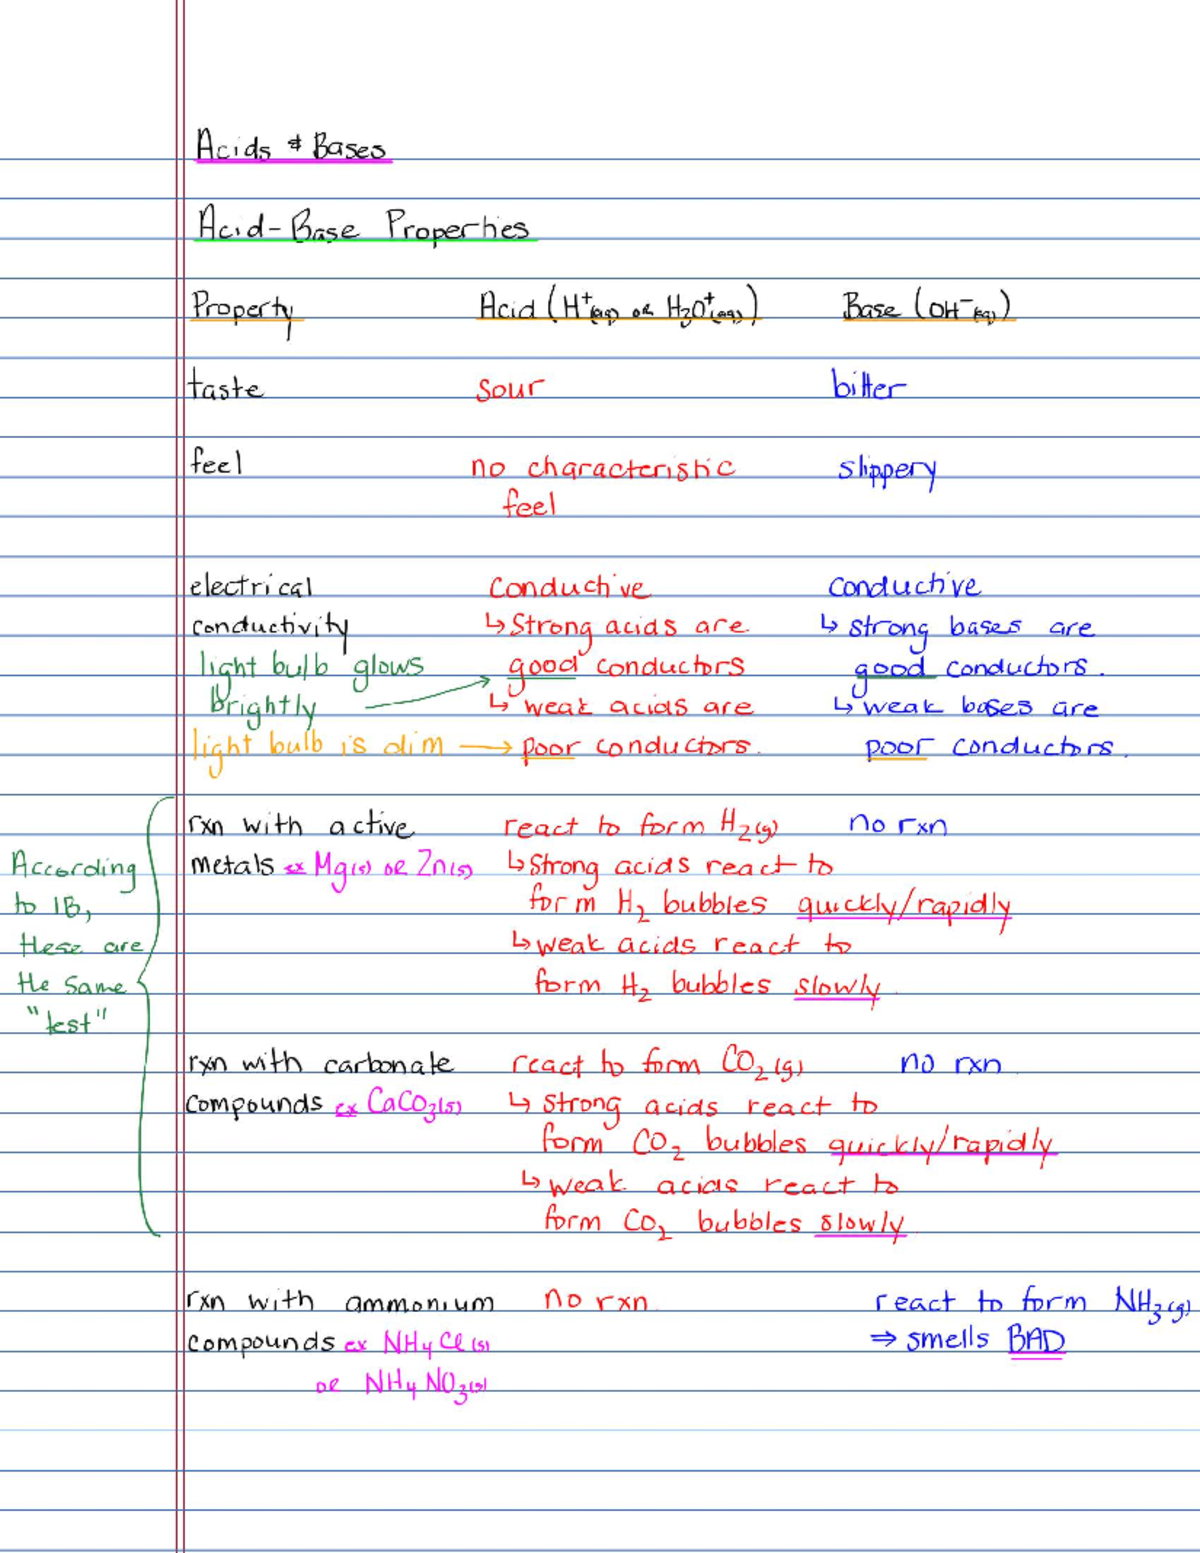 Acids & Bases
Acid-Base Properties
Property Acid (H⁺(aq) or H₃O⁺(aq)) Base (OH⁻(aq))
taste sour bitter
feel no characteristic slippery
feel
electrical conductive conductive
conductivity ↳ Strong acids are ↳ strong bases are
light bulb glows good conductors good conductors.
brightly → ↳ weak acids are ↳ weak bases are
light bulb is dim → poor conductors. poor conductors.
rxn with active react to form H₂(g) no rxn
According metals ex Mg(s) or Zn(s) ↳ Strong acids react to
to IB, form H₂ bubbles quickly/rapidly
these are ↳ weak acids react to
the same form H₂ bubbles slowly.
"test"
rxn with carbonate react to form CO₂(g) no rxn
compounds ex CaCO₃(s) ↳ strong acids react to
form CO₂ bubbles quickly/rapidly
↳ weak acids react to
form CO₂ bubbles slowly.
rxn with ammonium no rxn react to form NH₃(g)
compounds ex NH₄Cl(s) ⇒ smells BAD
or NH₄NO₃(s)